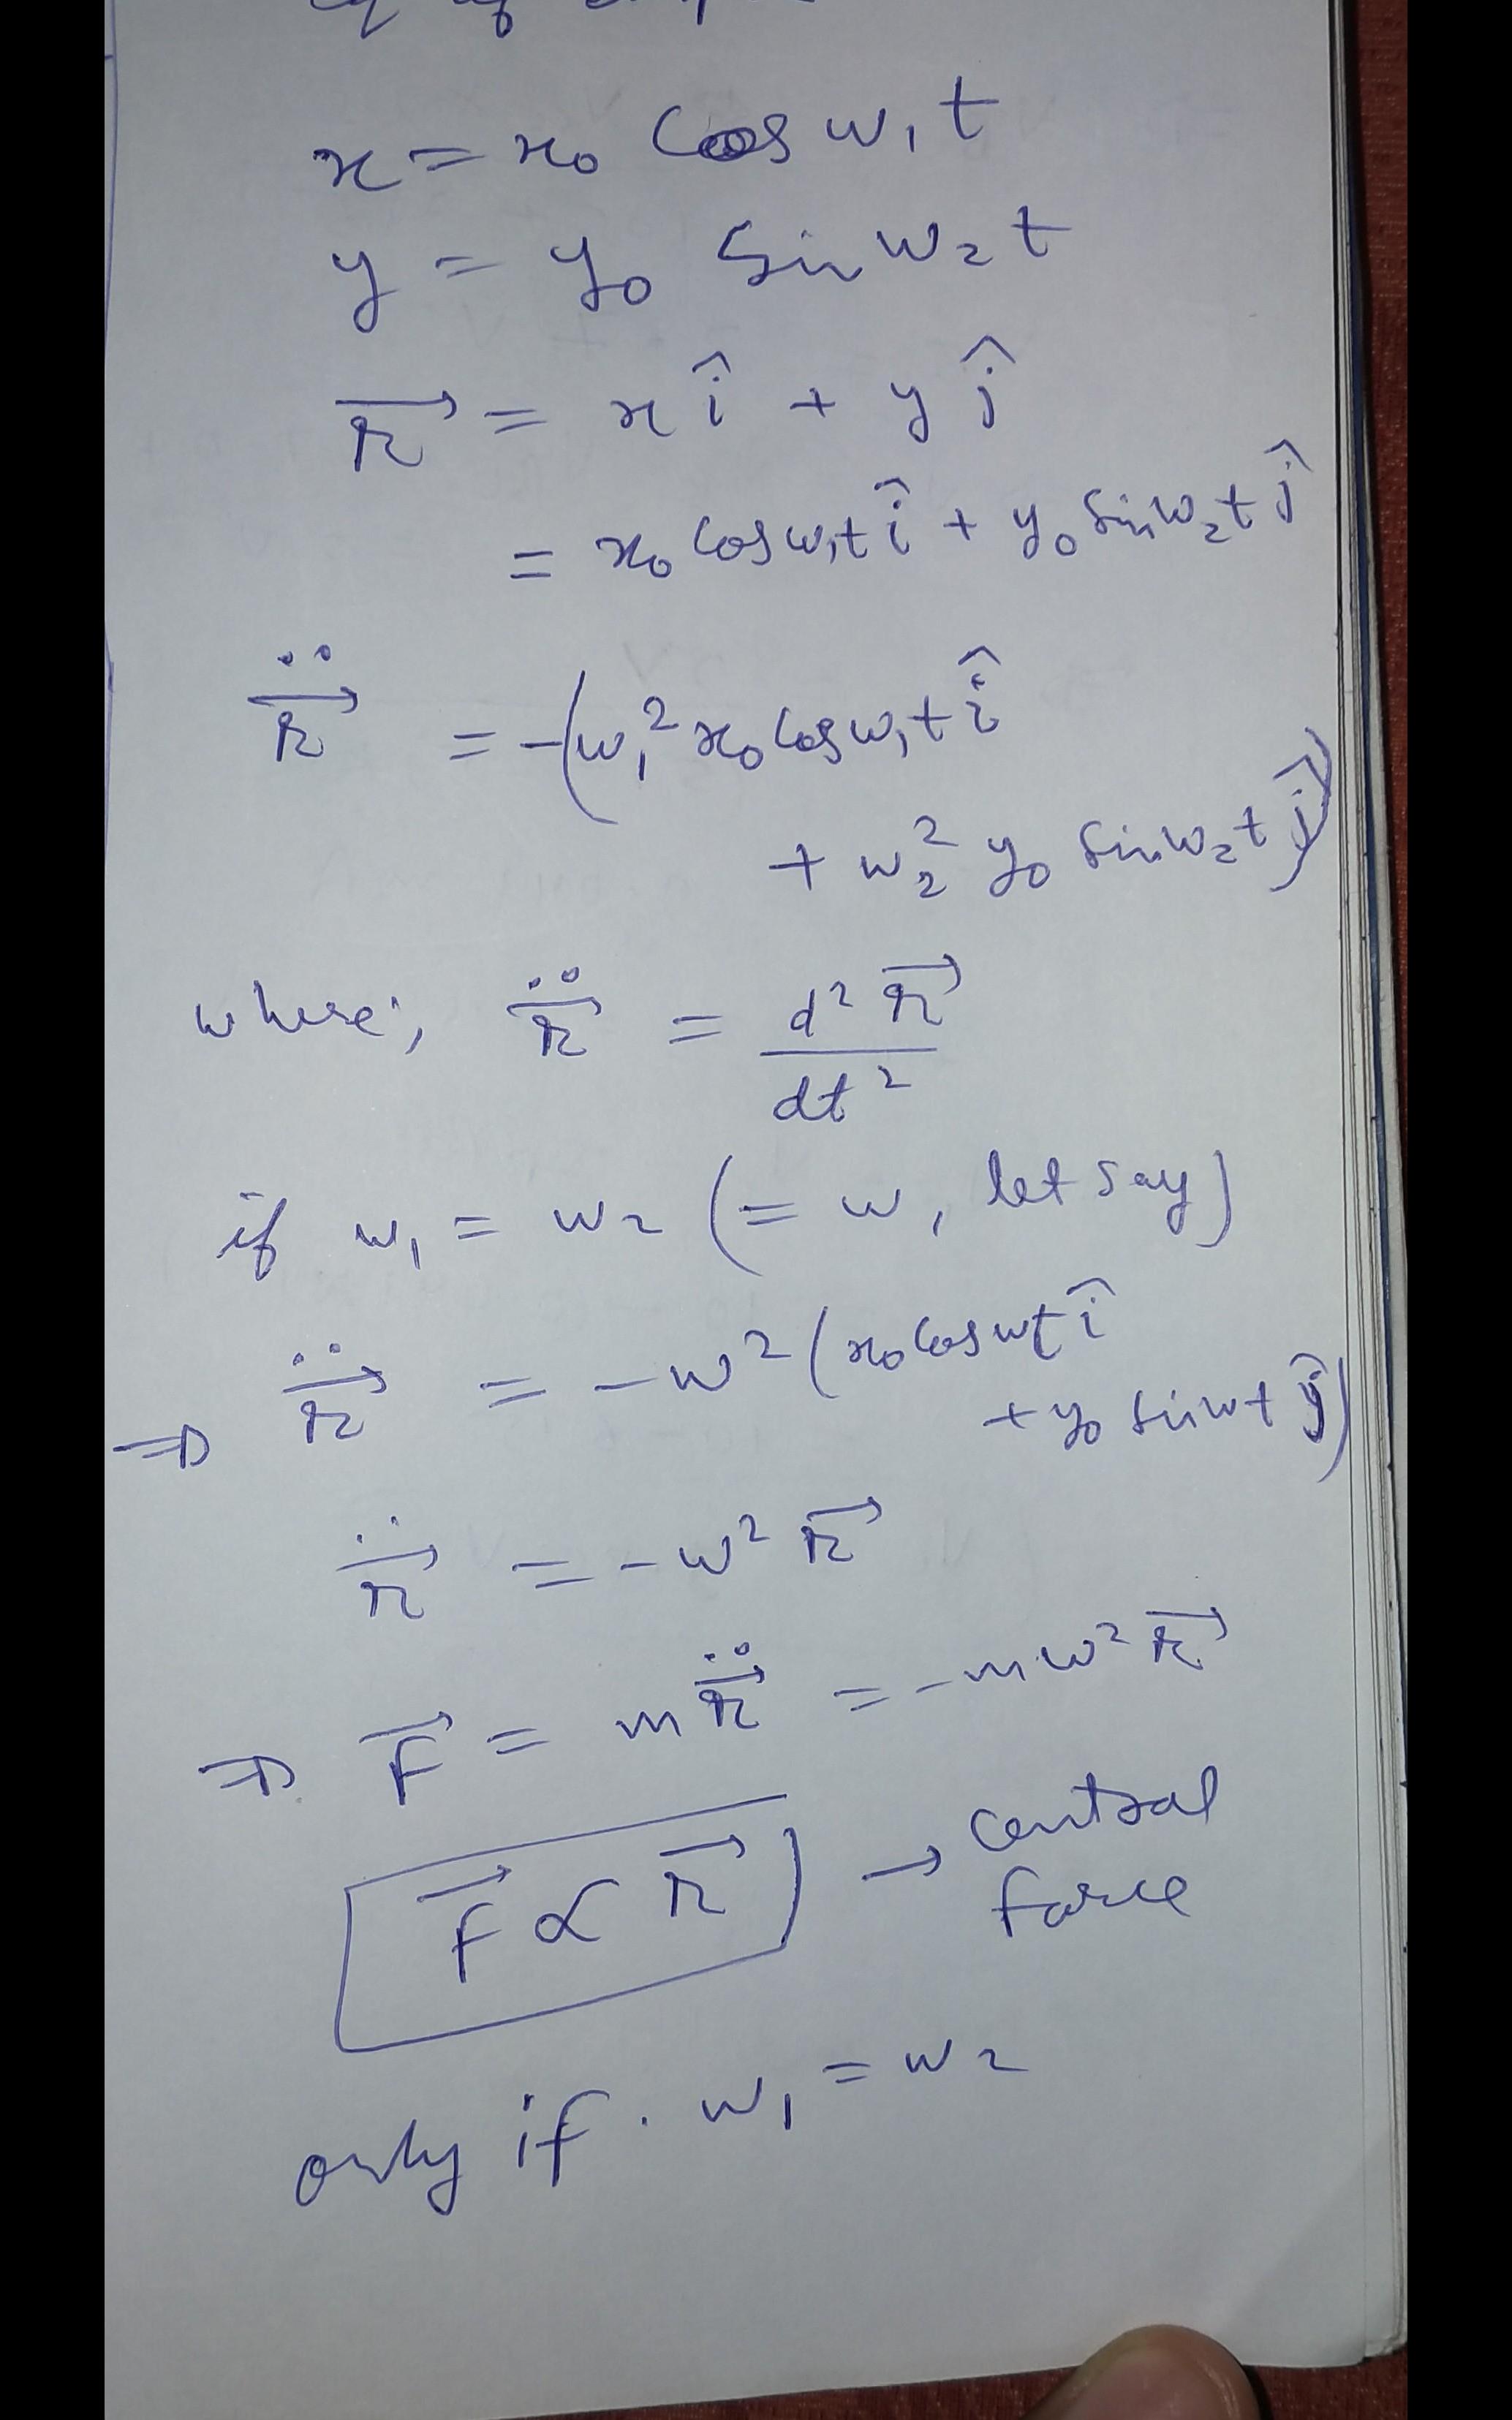 x = x₀ Cos w₁t
y = y₀ Sin w₂t
r⃗ = x î + y ĵ
= x₀ Cos w₁t î + y₀ Sin w₂t ĵ
r⃗̈ = -(w₁² x₀ Cos w₁t î
+ w₂² y₀ Sin w₂t ĵ)
where, r⃗̈ = d² r⃗ / dt²
if w₁ = w₂ (= w, let say)
⇒ r⃗̈ = -w² (x₀ Cos wt î
+ y₀ Sin wt ĵ)
r⃗̈ = -w² r⃗
⇒ F⃗ = m r⃗̈ = -mw² r⃗
F⃗ ∝ r⃗ → Central
force
only if. w₁ = w₂